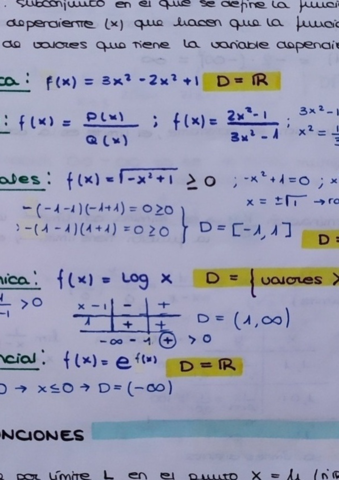 . subconjunto en el que se define la función
dependiente (x) que hacen que la función
de valores que tiene la variable dependie
ca: f(x) = 3x² - 2x² + 1 D = ℝ
: f(x) = P(x)/Q(x) ; f(x) = 2x²-1/3x²-1 ; 3x²-1
x² = 1/3
ales: f(x) = √-x²+1 ≥ 0 ; -x²+1=0 ; x
x = ±√1 →
-(-1-1)(-1+1) = 0≥0
: -(1-1)(1+1) = 0≥0 } D = [-1,1]
D =
mica: f(x) = Log x D = { valores >
1/-1 > 0
x-1 | - | +
1 | + | +
-∞ - 1 + > 0
D = (1,∞)
ncial: f(x) = e^f(x) D = ℝ
0 → x≤0 → D = (-∞)
NCIONES
por límite L en el punto x =